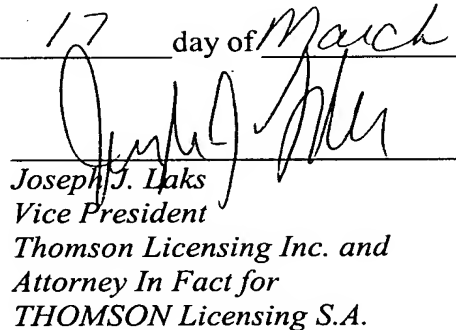 17 day of March
Joseph J. Laks
Vice President
Thomson Licensing Inc. and
Attorney In Fact for
THOMSON Licensing S.A.